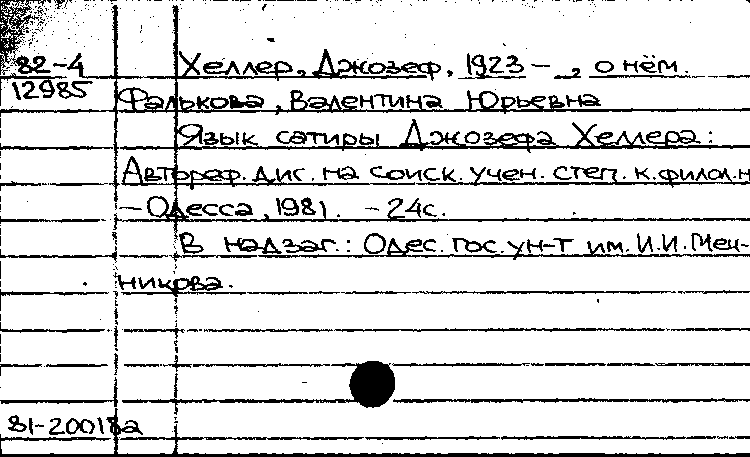 82-4 Хеллер, Джозеф, 1923 - , о нём.
12985 Фалькова, Валентина Юрьевна
Язык сатиры Джозефа Хеллера:
Автореф. дис. на соиск. учен. степ. к. филол. н
- Одесса, 1981. - 24с.
В надзаг.: Одес. гос. ун-т им. И.И. Меч-
никова.
81-20018а